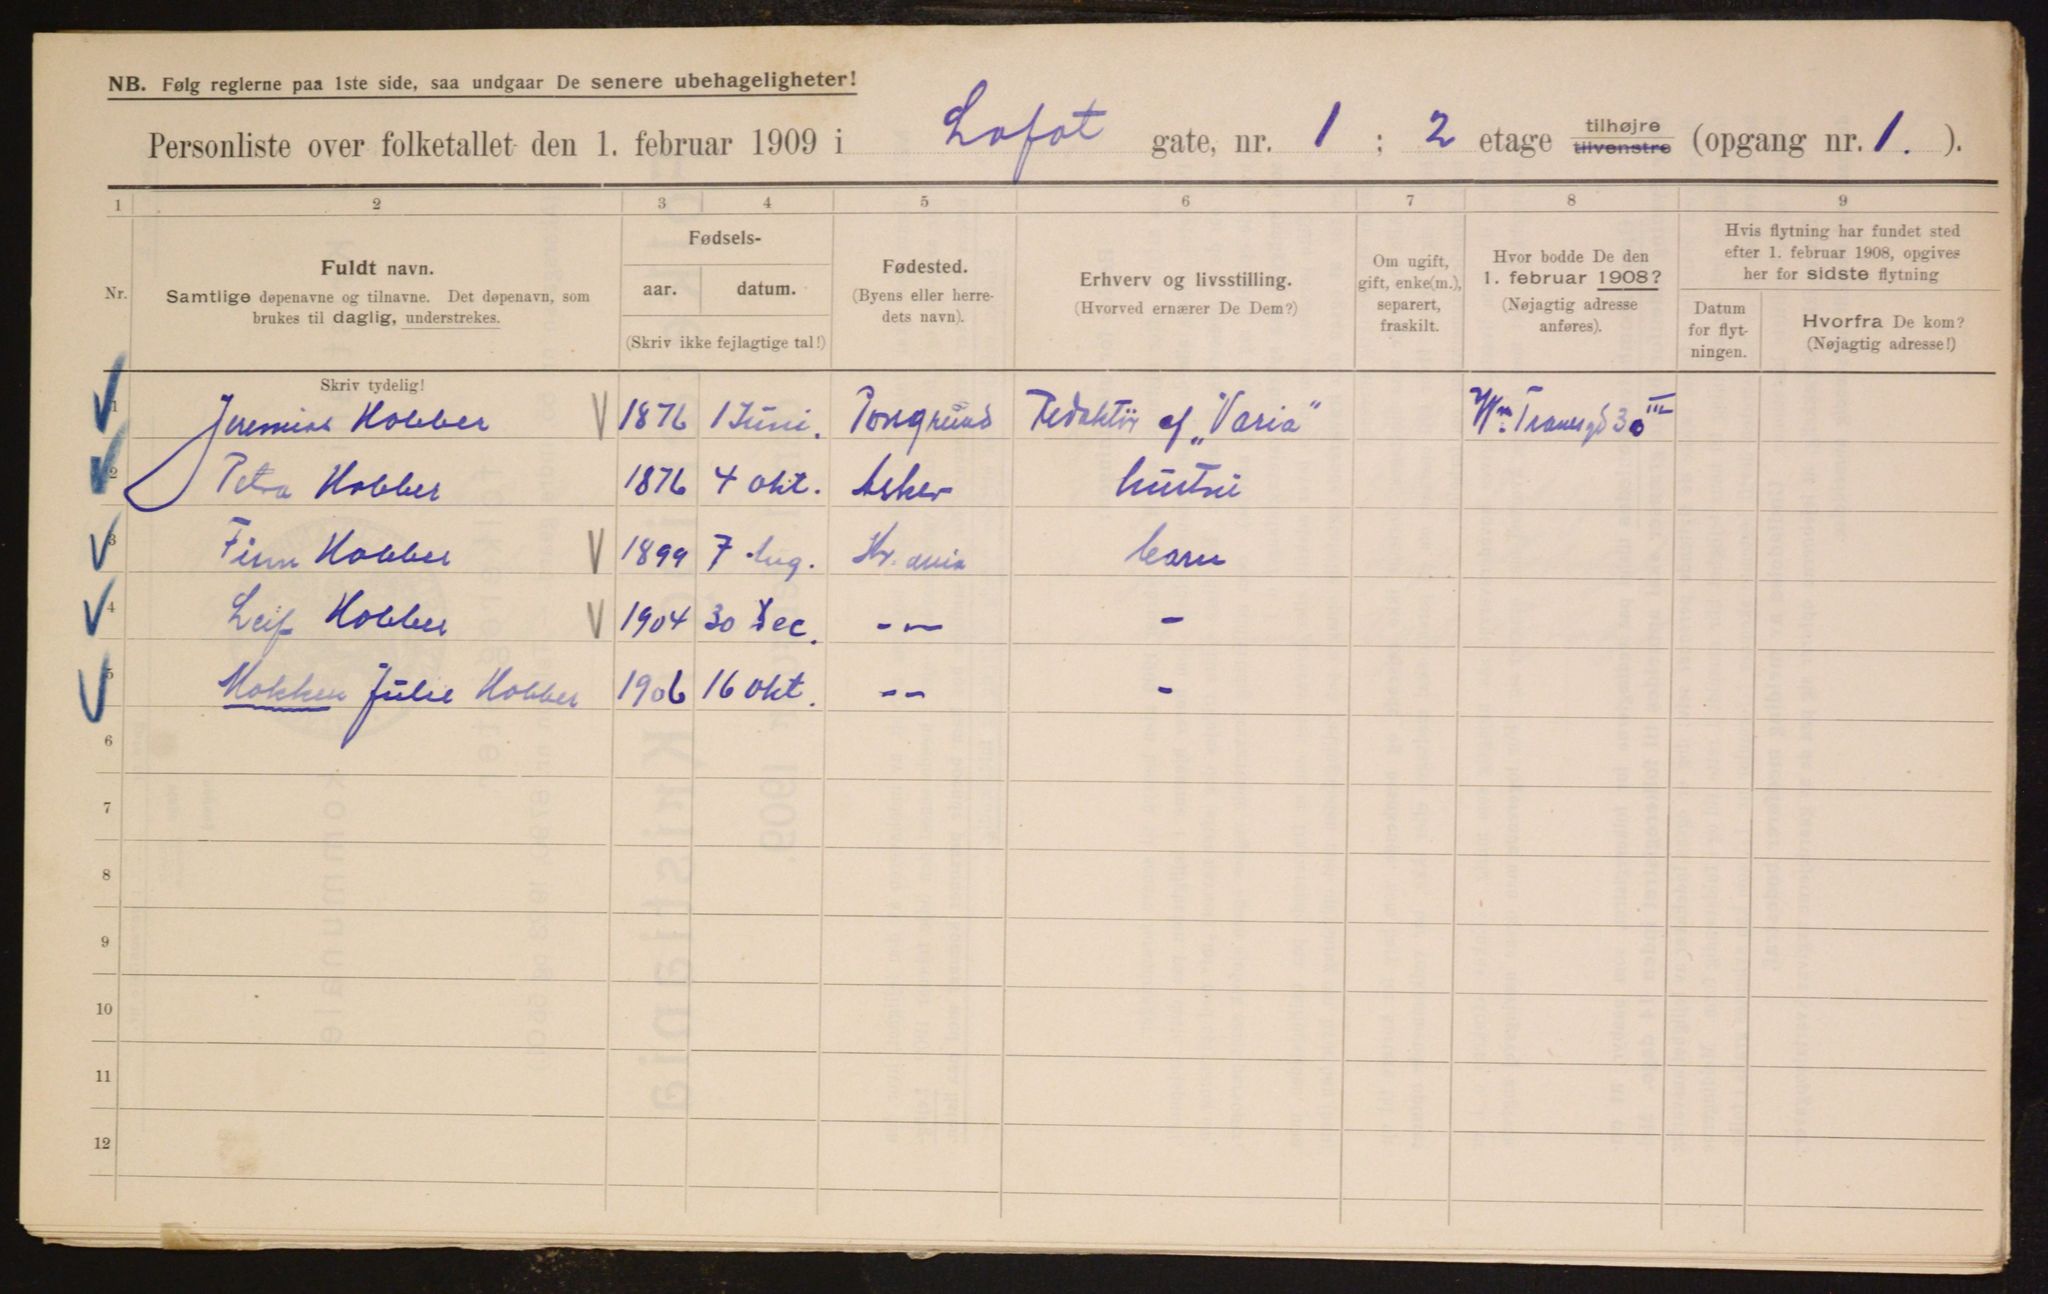 NB. Følg reglerne paa 1ste side, saa undgaar De senere ubehageligheter!
Personliste over folketallet den 1. februar 1909 i Lofot gate, nr. 1 ; 2 etage tilhøjre tilvenstre (opgang nr. 1. ).
1 2 3 4 5 6 7 8 9
Nr.
Fuldt navn.
Samtlige døpenavne og tilnavne. Det døpenavn, som
brukes til daglig, understrekes.
Skriv tydelig!
Fødsels-
aar. datum.
(Skriv ikke fejlagtige tal!)
Fødested.
(Byens eller herre-
dets navn).
Erhverv og livsstilling.
(Hvorved ernærer De Dem?)
Om ugift,
gift, enke(m.),
separert,
fraskilt.
Hvor bodde De den
1. februar 1908?
(Nøjagtig adresse
anføres).
Hvis flytning har fundet sted
efter 1. februar 1908, opgives
her for sidste flytning
Datum
for flyt-
ningen.
Hvorfra De kom?
(Nøjagtig adresse!)
1 Jeremias Hobber 1876 1 Juni. Porsgrund Redaktør af „Varia" Wm. Tranesgd 30 III
2 Petra Hobber 1876 4 Okt. Asker hustru
3 Finn Hobber 1899 7 Aug. Kr.ania barn
4 Leif Hobber 1904 30 Dec. -- -
5 Julie Hobber 1906 16 Okt. -- -
6
7
8
9
10
11
12